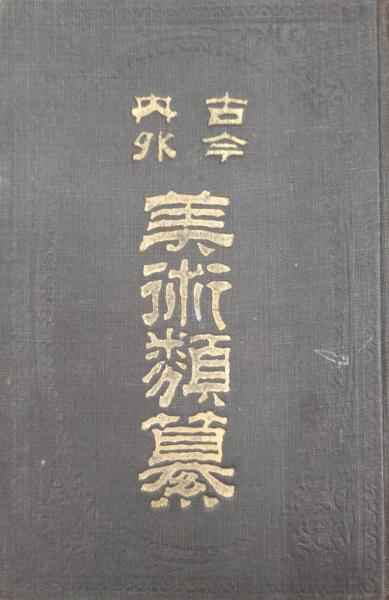 古今
内外
美術類纂